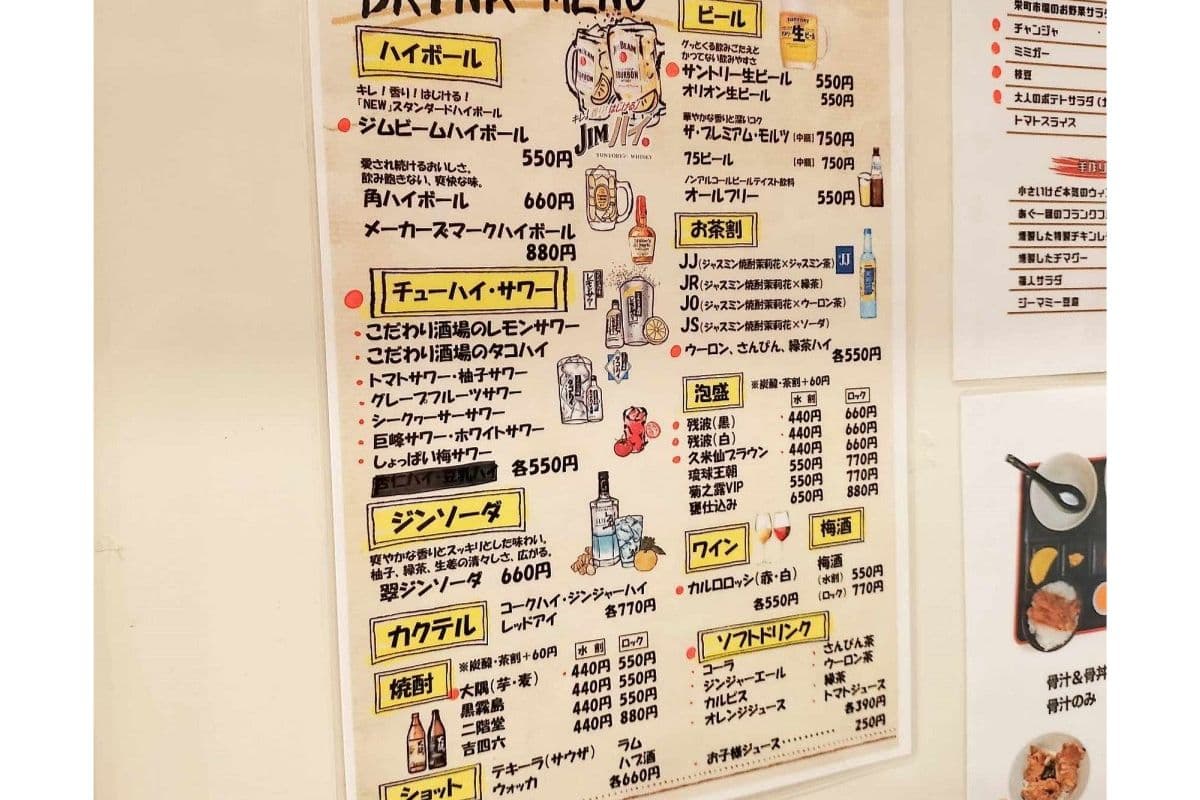 DRINK MENU
ハイボール
キレ!香り!はじける!
「NEW」スタンダードハイボール
ジムビームハイボール
550円
愛され続けるおいしさ。
飲み飽きない、爽快な味。
角ハイボール 660円
メーカーズマークハイボール
880円
JIM BEAM
BOURBON
キレ!香り!はじける!
JIMハイ。
SUNTORY WHISKY
チューハイ・サワー
こだわり酒場のレモンサワー
こだわり酒場のタコハイ
トマトサワー・柚子サワー
グレープフルーツサワー
シークヮーサーサワー
巨峰サワー・ホワイトサワー
しょっぱい梅サワー
杏仁ハイ・豆乳ハイ 各550円
ジンソーダ
爽やかな香りとスッキリとした味わい。
柚子、緑茶、生姜の清々しさ、広がる。
翠ジンソーダ 660円
カクテル
コークハイ・ジンジャーハイ
レッドアイ 各770円
焼酎
※炭酸・茶割+60円
水割 ロック
大隅(芋・麦) 440円 550円
黒霧島 440円 550円
二階堂 440円 550円
吉四六 440円 880円
ショット
テキーラ(サウザ) ラム
ウォッカ ハブ酒
各660円
ビール
グッとくる飲みごたえと
かつてない飲みやすさ
サントリー生ビール 550円
オリオン生ビール 550円
華やかな香りと深いコク
ザ・プレミアム・モルツ [中瓶] 750円
75ビール [中瓶] 750円
ノンアルコールビールテイスト飲料
オールフリー 550円
SUNTORY
生
ビール
お茶割
JJ(ジャスミン焼酎茉莉花×ジャスミン茶)
JR(ジャスミン焼酎茉莉花×緑茶)
JO(ジャスミン焼酎茉莉花×ウーロン茶)
JS(ジャスミン焼酎茉莉花×ソーダ)
ウーロン、さんぴん、緑茶ハイ
各550円
JJ
泡盛
※炭酸・茶割+60円
水割 ロック
残波(黒) 440円 660円
残波(白) 440円 660円
久米仙ブラウン 440円 660円
琉球王朝 550円 770円
菊之露VIP 550円 770円
甕仕込み 650円 880円
ワイン
カルロロッシ(赤・白)
各550円
梅酒
梅酒
(水割) 550円
(ロック) 770円
ソフトドリンク
コーラ さんぴん茶
ジンジャーエール ウーロン茶
カルピス 緑茶
オレンジジュース トマトジュース
各390円
お子様ジュース 250円
栄町市場のお野菜サラダ
チャンジャ
ミミガー
枝豆
大人のポテトサラダ
トマトスライス
手作り
小さいけど本気のウィン
あぐー豚のフランクフ
燻製した特製チキンレ
燻製したチマグー
職人サラダ
ジーマミー豆腐
骨汁&骨丼
骨汁のみ